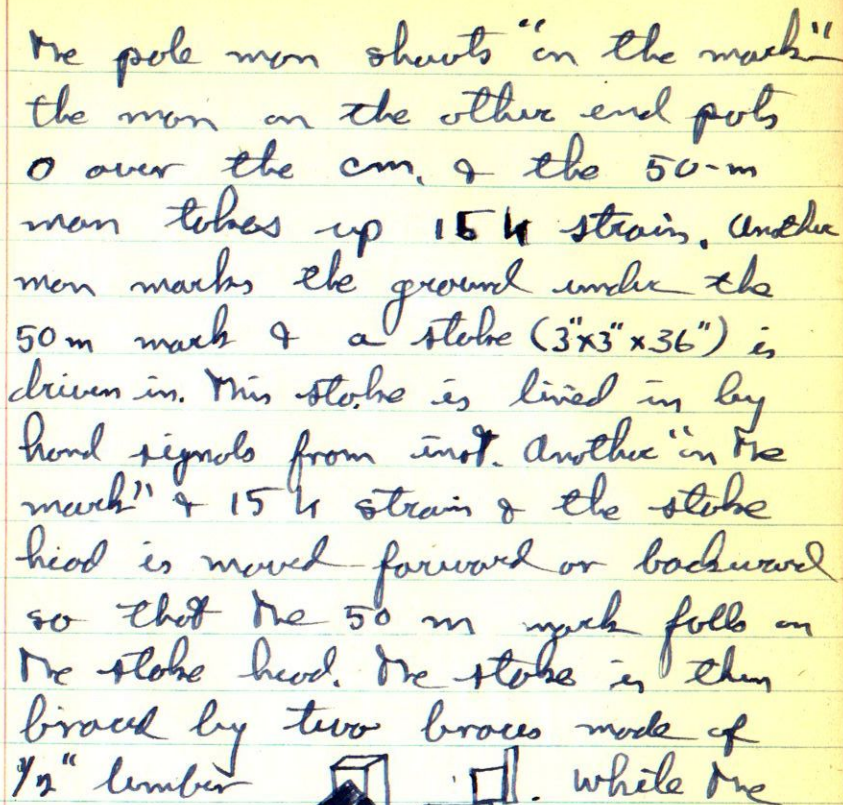 The pole man shouts "on the mark"
the man on the other end puts
0 over the cm. & the 50-m
man takes up 15 k strain. Another
man marks the ground under the
50 m mark & a stake (3"x3"x36") is
driven in. This stake is lined in by
hand signals from inst. Another "on the
mark" & 15 k strain & the stake
head is moved forward or backward
so that the 50 m mark falls on
the stake head. The stake is then
braced by two braces made of
1/2" lumber . While the